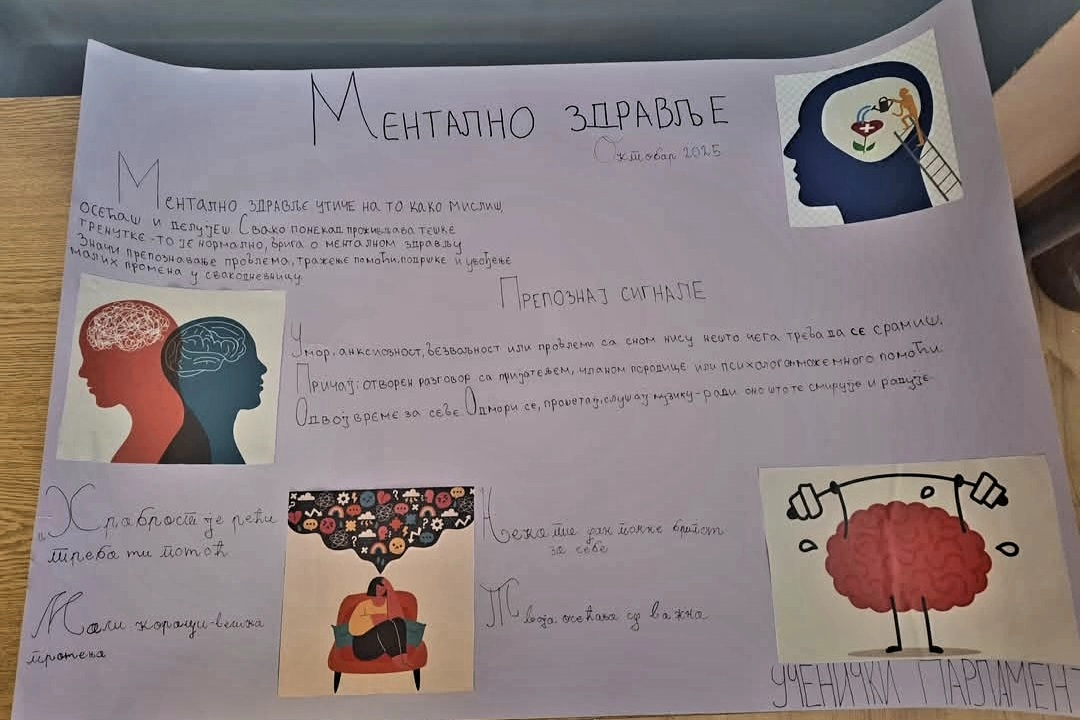 Ментално здравље
Октобар 2025
Ментално здравље утиче на то како мислиш,
осећаш и делујеш. Свако понекад проживљава тешке
тренутке - то је нормално, брига о менталном здрављу
значи препознавање проблема, тражење помоћи, подршке и увођење
малих промена у свакодневницу.
Препознај сигнале
Умор, анксиозност, безвољност или проблеми са сном нису нешто чега треба да се срамиш.
Причај: отворен разговор са пријатељем, чланом породице или психологом може много помоћи.
Одвој време за себе. Одмори се, прошетај, слушај музику - ради оно што те смирује и радује.
„Храброст је рећи
треба ти помоћ
Мали кораци - велика
промена
Нека те дан
за себе
Твоја осећања су важна
УЧЕНИЧКИ ПАРЛАМЕНТ